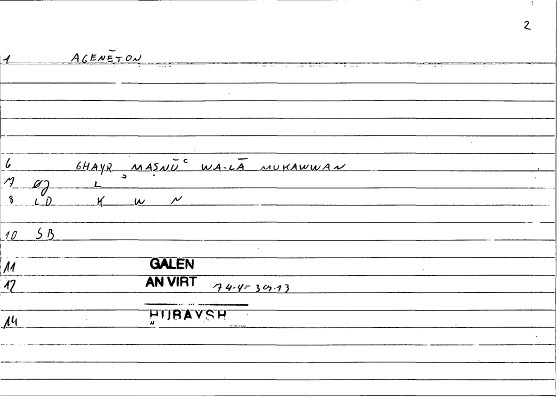 2
1 AGENĒTON
6 GHAYR MAṢNŪʿ WA-LĀ MUKAWWAN
7 aj L
8 LD K W N
10 SB
11 GALEN
12 AN VIRT
14 ḤUBAYSH